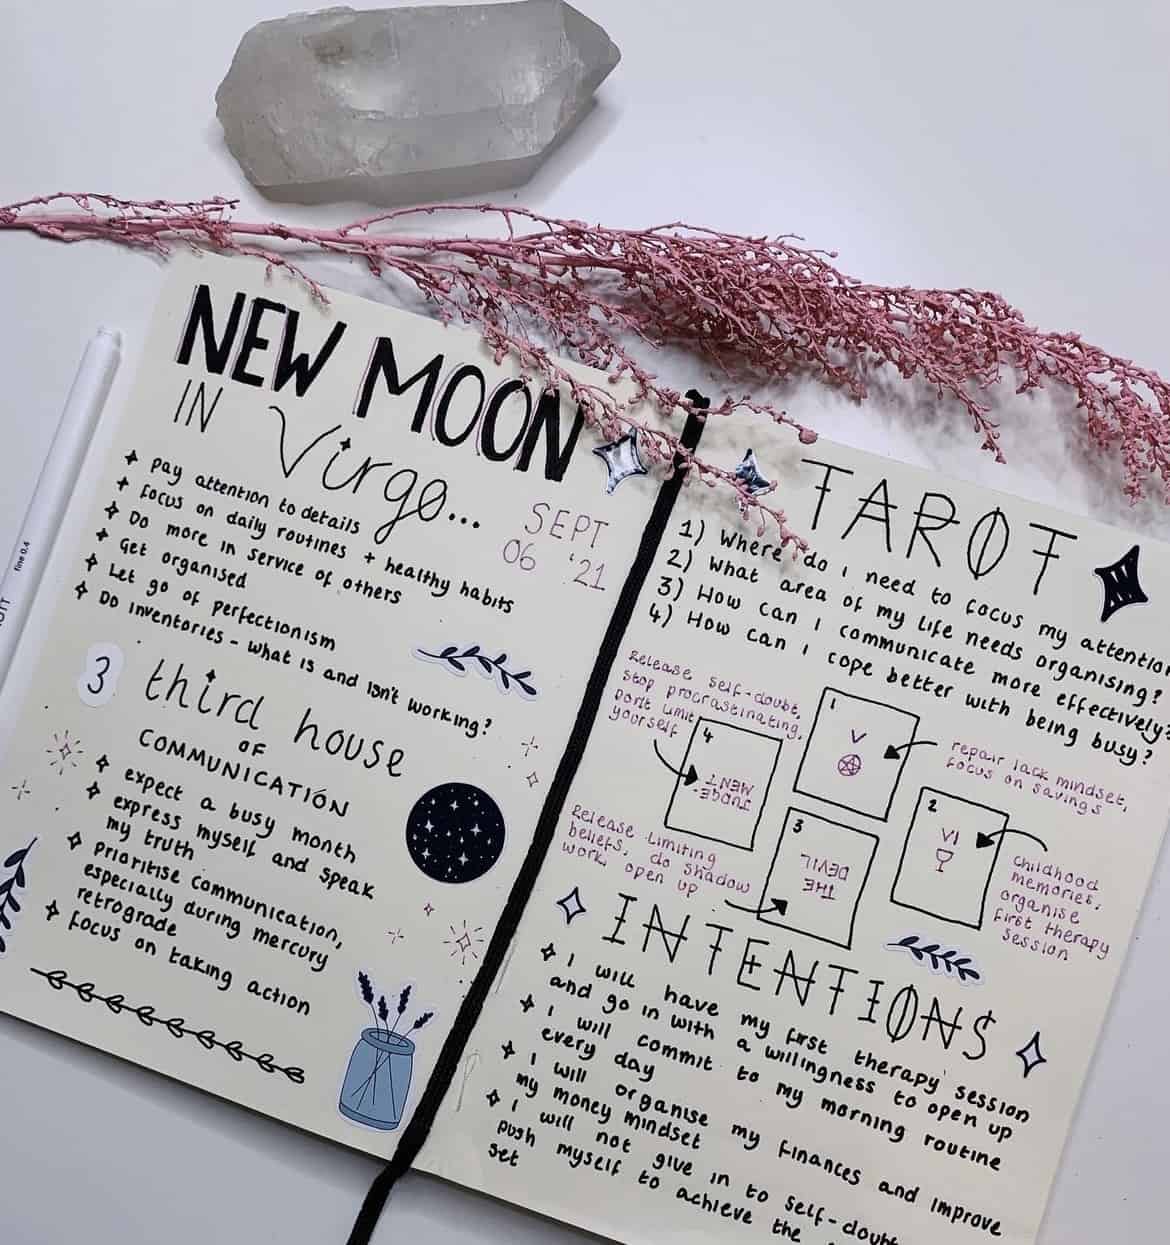 NEW MOON
IN Virgo...
SEPT
06 '21
Pay attention to details
focus on daily routines + healthy habits
Do more in service of others
Get organised
Let go of perfectionism
Do inventories - what is and isn't working?
3 third house
OF
COMMUNICATION
expect a busy month
express myself and speak
my truth
Prioritise communication,
especially during mercury
retrograde
focus on taking action
fine 0.4
TAROT
1) Where do I need to focus my attention
2) What area of my life needs organising?
3) How can I communicate more effectively?
4) How can I cope better with being busy?
Release self-doubt,
stop procrastinating,
Don't limit
yourself
4
JUDGE-
MENT
1
V
repair lack mindset,
focus on savings
2
VI
Childhood
memories,
organise
first therapy
session
Release limiting
beliefs, do shadow
work, open up
3
THE
DEVIL
INTENTIONS
I will have my first therapy session
and go in with a willingness to open up
I will commit to my morning routine
every day
I will organise my finances and improve
my money mindset
I will not give in to self-doubt
push myself to achieve the
set